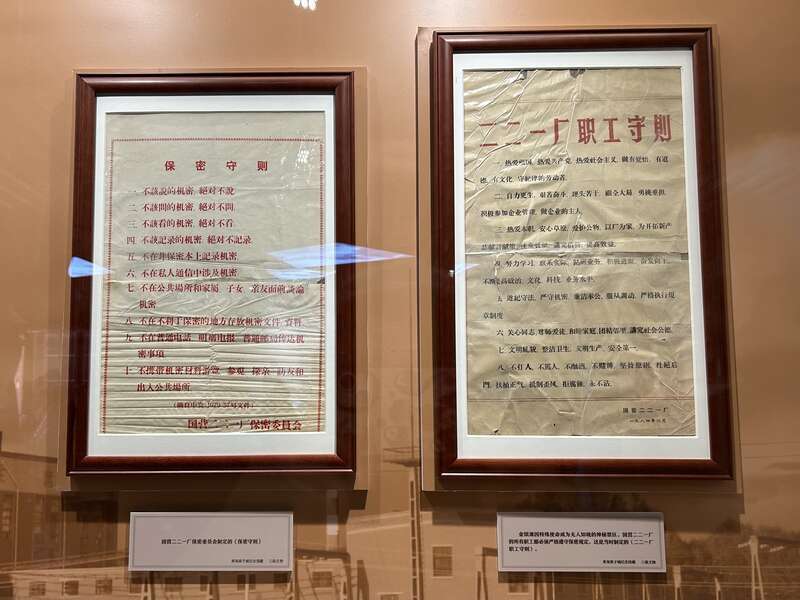 保密守则
一 不該說的机密, 絕对不說
二 不該問的机密, 絕对不問
三 不該看的机密, 絕对不看
四 不該記录的机密, 絕对不記录
五 不在非保密本上記录机密
六 不在私人通信中涉及机密
七 不在公共場所和家属, 子女, 亲友面前談論
机密
八 不在不利于保密的地方存放机密文件, 資料
九 不在普通电話, 明碼电报, 普通邮局傳达机
密事項
十 不携带机密材料游覽, 参观, 探亲, 訪友和
出入公共場所
国营二二一厂保密委員会
二二一厂职工守则
一、热爱祖国，热爱共产党，热爱社会主义，做有理想、有道
德、有文化、守纪律的劳动者。
二、自力更生，艰苦奋斗，埋头苦干，顾全大局，勇挑重担，
积极参加企业管理，做企业的主人。
三、热爱本职，安心草原，爱护公物，以厂为家，为开拓新产
四、努力学习，
不断提高政治、文化、科技、业务水平。
五、遵纪守法，严守机密，廉洁奉公，服从调动，严格执行规
章制度
六、关心同志，尊师爱徒，和睦家庭，团结邻里，讲究社会公德。
七、文明礼貌，整洁卫生，文明生产，安全第一。
八、不打人，不骂人，不酗酒，不赌博，坚持原则，杜绝后
门，扶植正气，抵制歪风，拒腐蚀，永不沾。
国营二二一厂
国营二二一厂保密委员会制定的《保密守则》
青海原子城纪念馆藏 三级文物
金银滩因特殊使命成为无人知晓的神秘禁区，国营二二一厂
的所有职工都必须严格遵守保密规定，这是当时制定的《二二一厂
职工守则》。
青海原子城纪念馆藏 三级文物